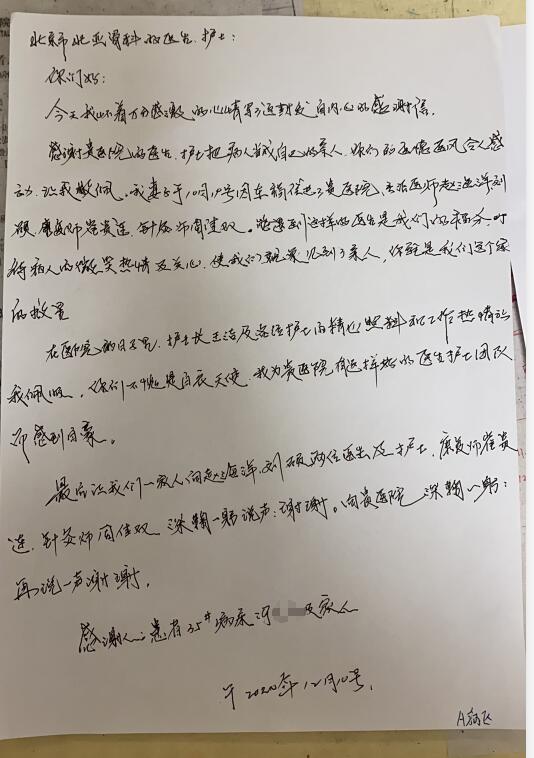 北京市北亚骨科的医生、护士:
你们好:
今天我怀着万分感激的心情写了这封发自内心的感谢信。
感谢贵医院的医生、护士把病人当成自己的亲人、你们的医德医风令人感
动、让我敬佩。我妻子于10月号因车祸住进了贵医院、主治医师赵海洋刘
硕、康复师崔贵连、针灸师周佳双。能遇到这样的医生是我们的福分、对
待病人的微笑热情及关心、使我们就象见到了亲人、你就是我们这个家
的救星
在医院的日子里、护士长王洁及各位护士的精心照料和工作热情让
我佩服、你们不愧是白衣天使、我为贵医院有这样好的医生护士团队
而感到自豪。
最后让我们一家人向赵海洋、刘硕两位医生及护士、康复师崔贵
连、针灸师周佳双 深鞠一躬说声:谢谢。向贵医院 深鞠一躬:
再说一声谢谢,
感谢人:患者35#病床 及家人
于2020年12月10号,